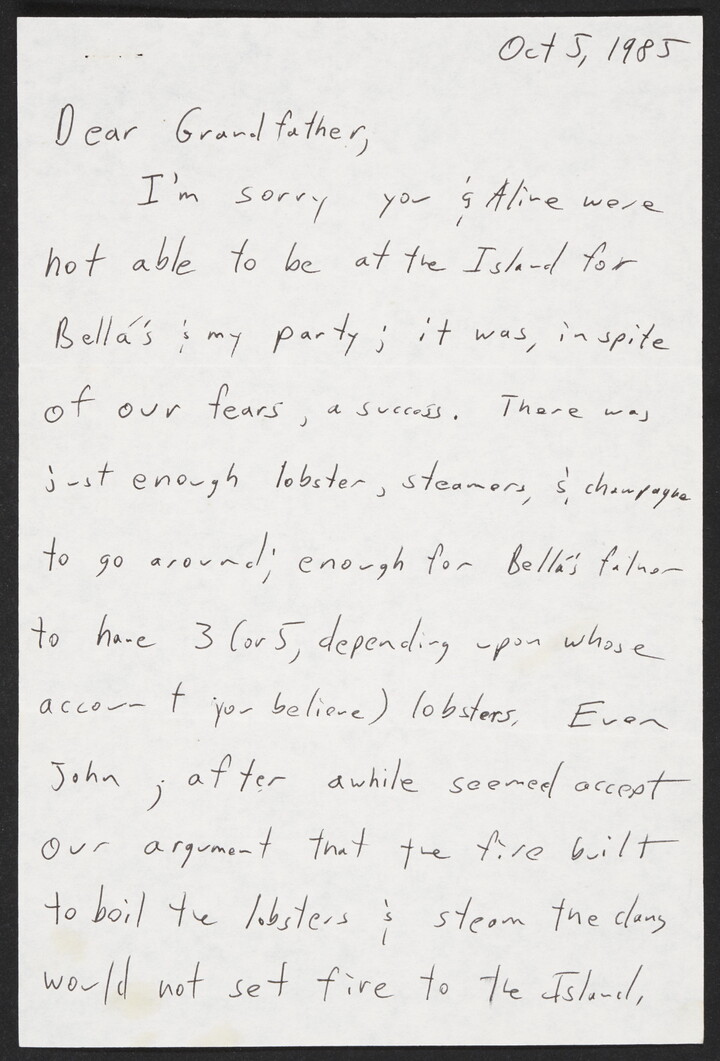 Oct 5, 1985
Dear Grandfather,
I'm sorry you & Aline were
not able to be at the Island for
Bella's & my party; it was, in spite
of our fears, a success. There was
just enough lobster, steamers, & champagne
to go around; enough for Bella's father
to have 3 (or 5, depending upon whose
account you believe) lobsters. Even
John, after awhile seemed accept
our argument that the fire built
to boil the lobsters & steam the clams
would not set fire to the Island,